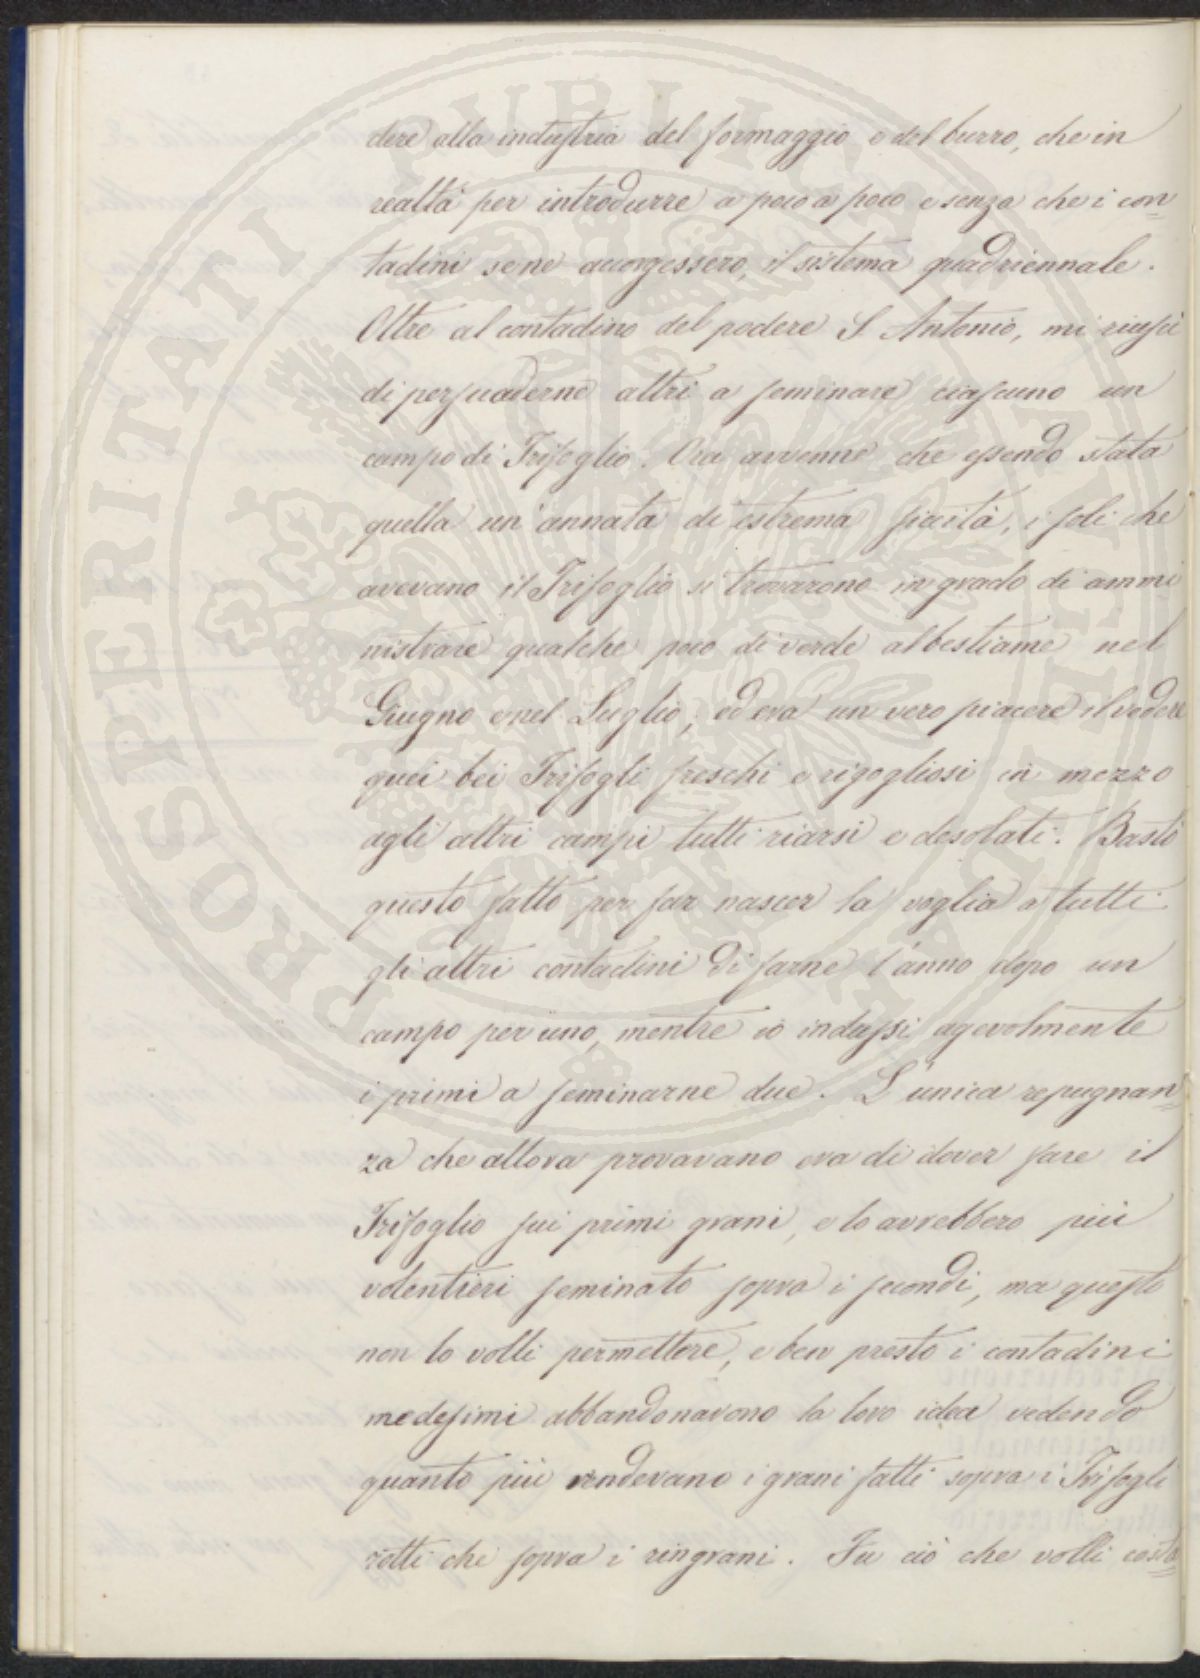 dere alla industria del formaggio e del burro, che in
realtà per introdurre a poco a poco e senza che i con=
tadini se ne accorgessero, il sistema quadriennale.
Oltre al contadino del podere S. Antonio, mi riuscì
di persuaderne altri a seminare ciascuno un
campo di Trifoglio. Ora avvenne che essendo stata
quella un'annata di estrema siccità, i soli che
avevano il Trifoglio si trovarono in grado di ammi
nistrare qualche poco di verde al bestiame nel
Giugno e nel Luglio, ed era un vero piacere il vedere
quei bei Trifogli freschi e rigogliosi in mezzo
agli altri campi tutti riarsi e desolati. Bastò
questo fatto per far nascer la voglia a tutti
gli altri contadini di farne l'anno dopo un
campo per uno, mentre io indussi agevolmente
i primi a seminarne due. L'unica repugnan=
za che allora provavano era di dover fare il
Trifoglio sui primi grani, e lo avrebbero più
volentieri seminato sopra i secondi, ma questo
non lo volli permettere, e ben presto i contadini
medesimi abbandonavono la loro idea vedendo
quanto più rendevano i grani fatti sopra i Trifogli
rotti che sopra i ringrani. Fu ciò che volli costa=
PROSPERITATI PUBLICAE AUGENDAE